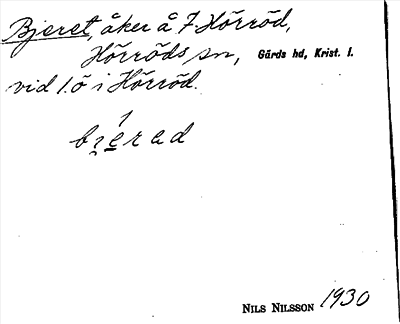 Bjeret, åker å 7 Hörröd,
Hörröds sn, Gärds hd, Krist. l.
vid 1.ö i Hörröd.
NILS NILSSON 1930